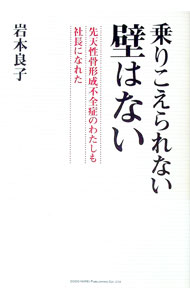 乗りこえられない
壁はない
先天性骨形成不全症のわたしも
社長になれた
岩本良子